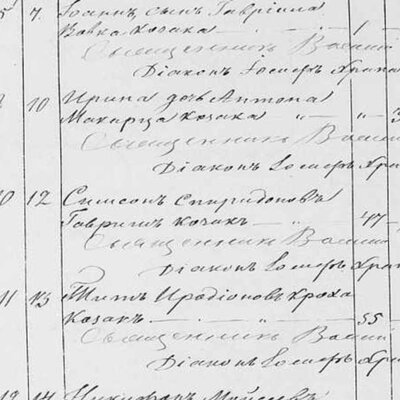 5 7. Іоаннъ, сынъ Гавріила
Вовка козака 1
Священникъ Василій
Діаконъ Іосифъ Храпа
10 Ирина дочь Антона
Макарца козака " "
Священникъ Василій
Діаконъ Іосифъ Хра
10 12 Симеонъ Спиридоновъ
козакъ 47
Священникъ Василій
Діаконъ Іосифъ Храп
11 13 Титъ Иродіоновъ Кроха
Козакъ 55
Священникъ Василій
Діаконъ Іосифъ Хра
14 Никифоръ Моѵсеевъ